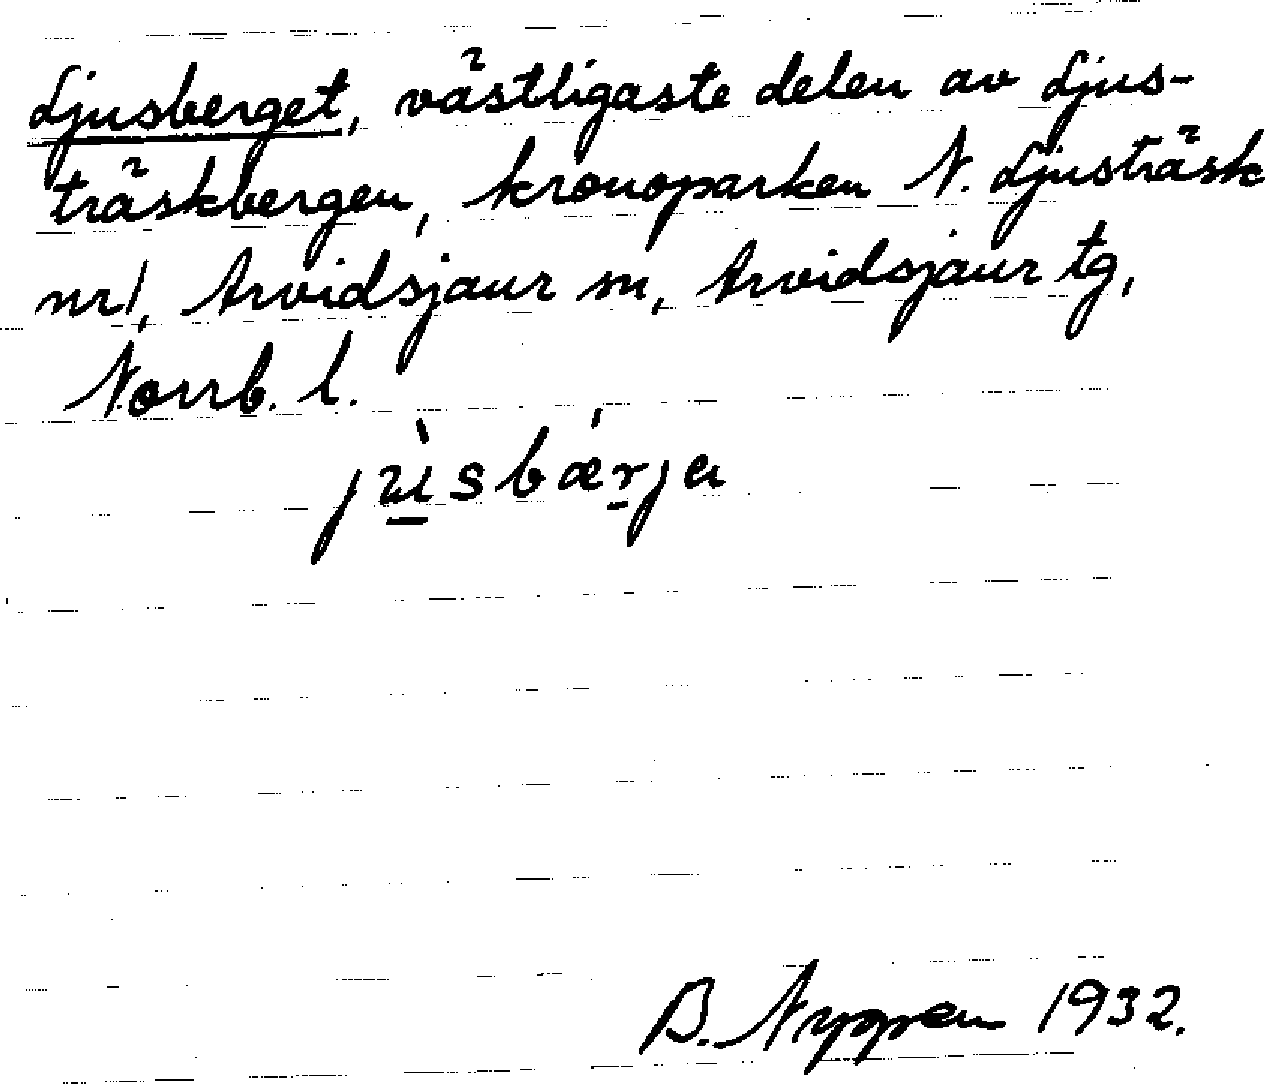 Ljusberget, västligaste delen av Ljus-
träskbergen, kronoparken N. Ljusträsk
nr 1, Arvidsjaur sn, Arvidsjaur tg,
Norrb. l.
B. 1932.